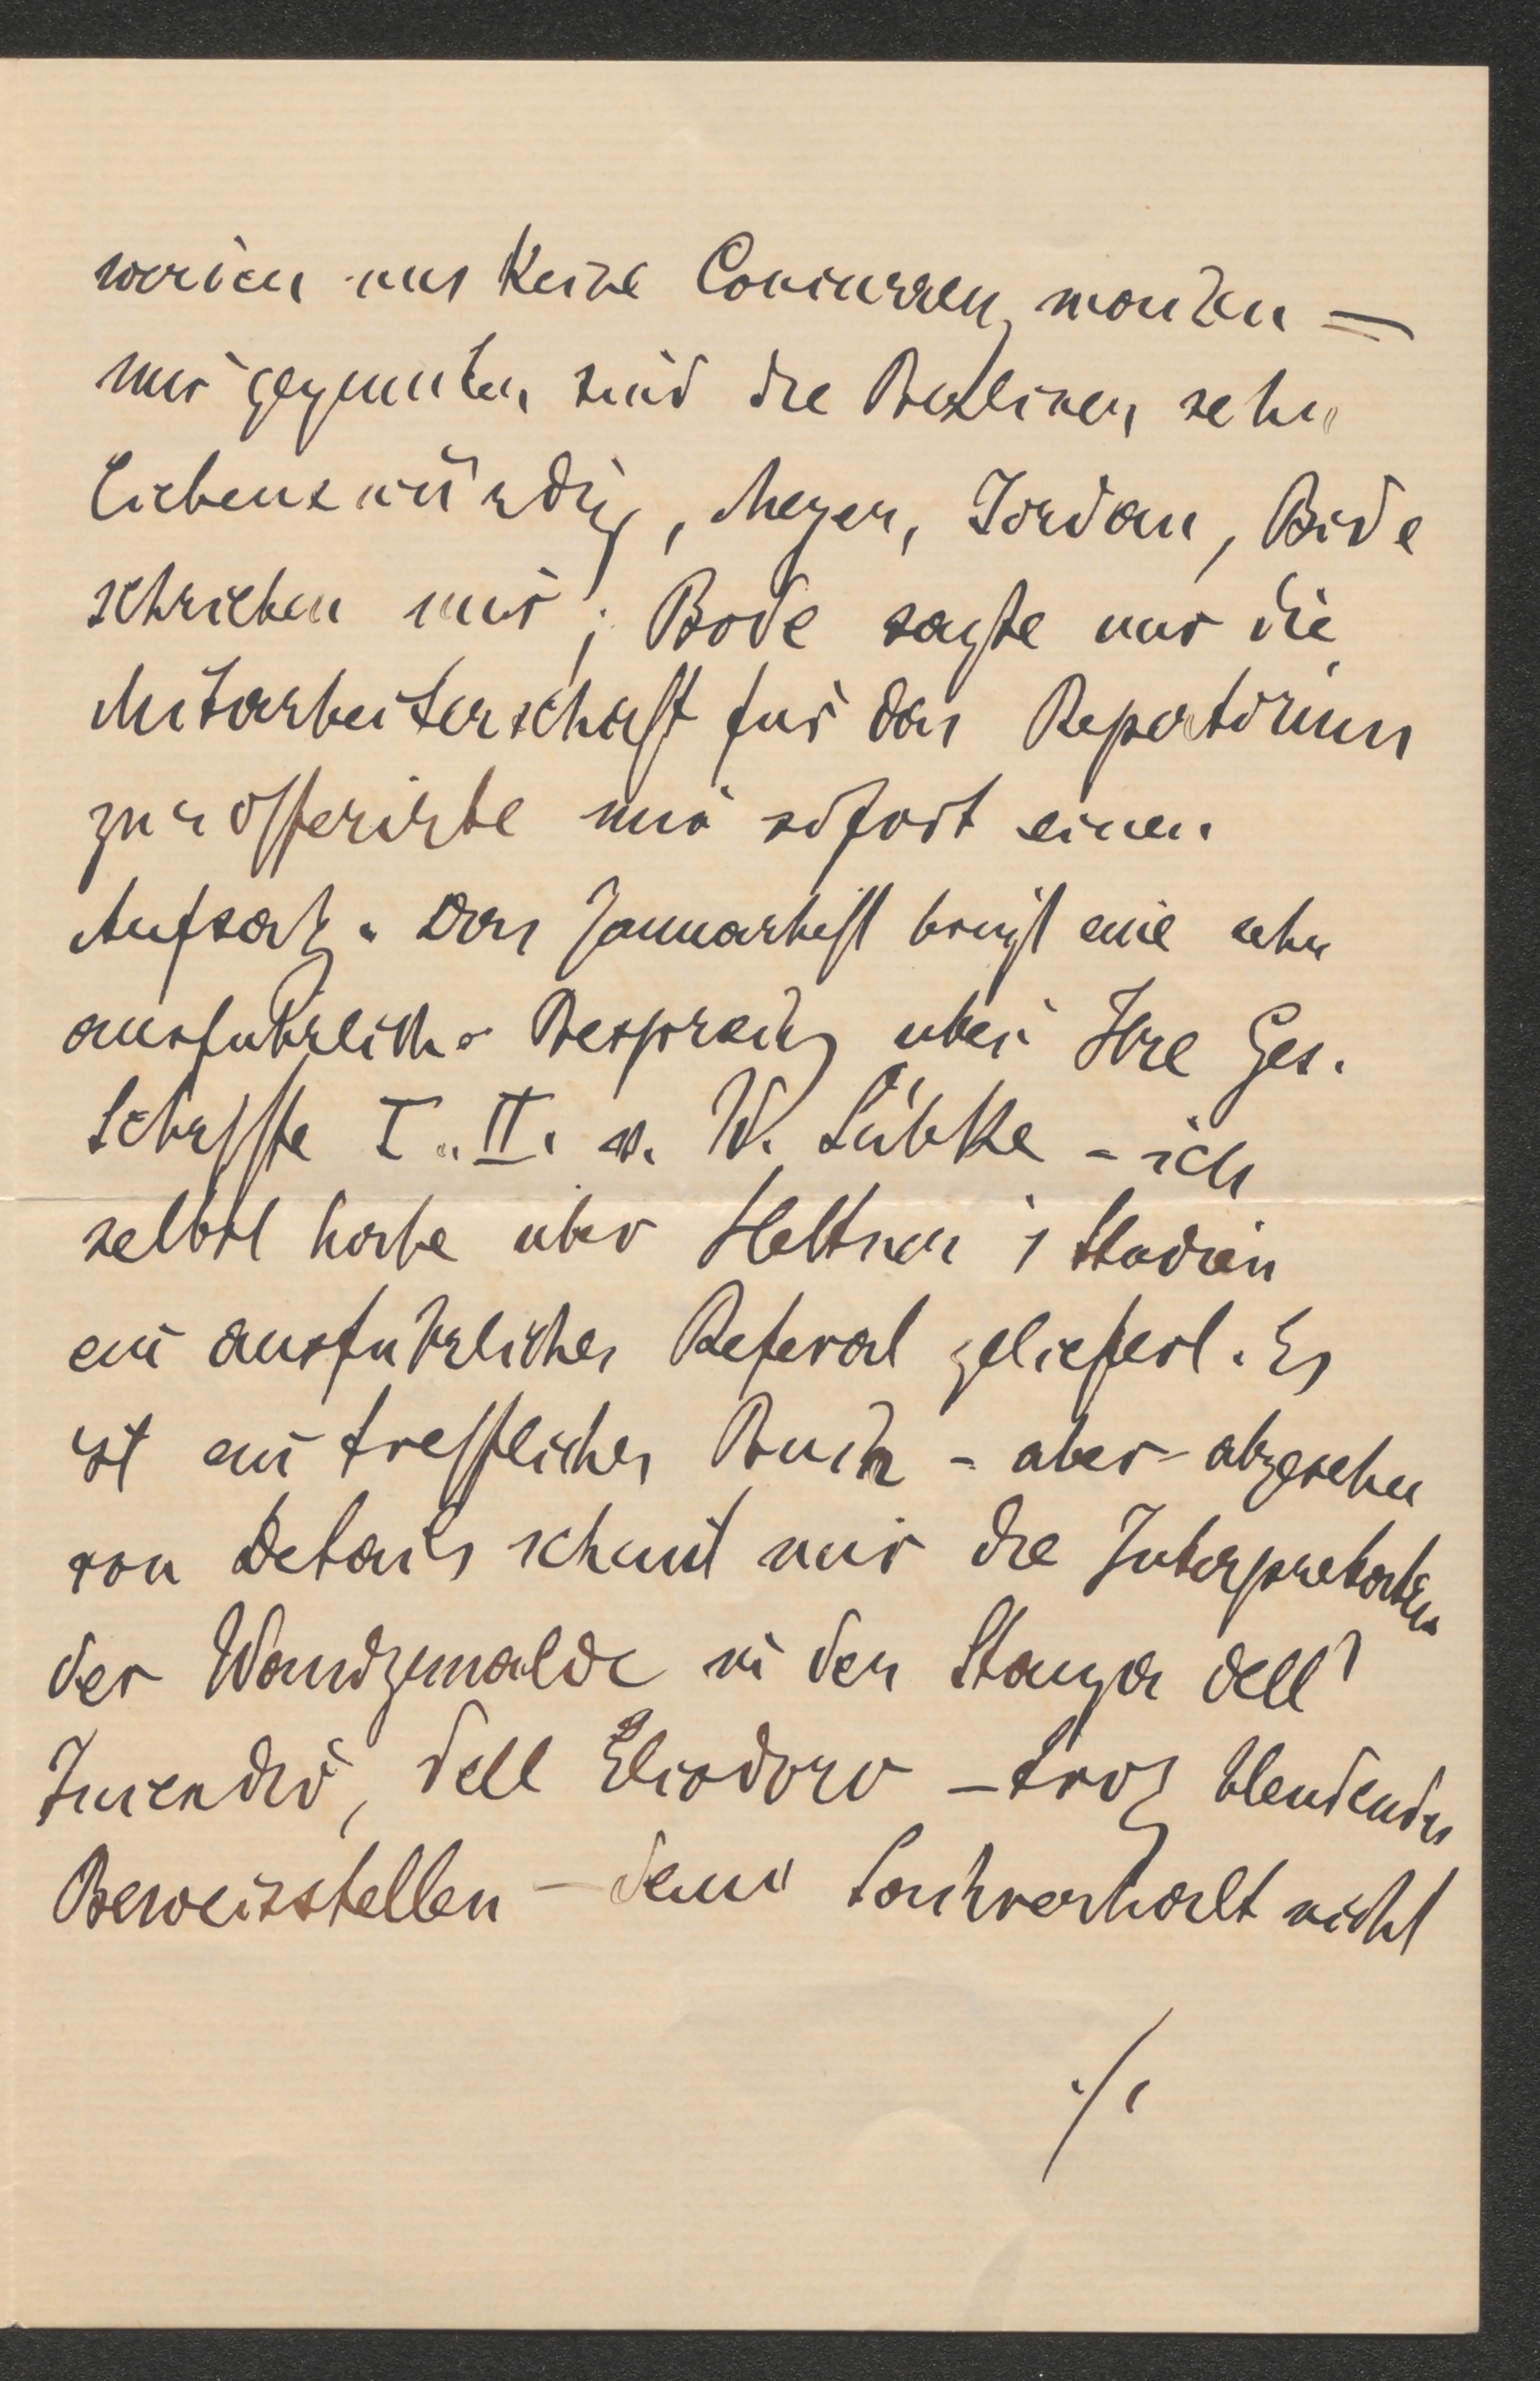 werden uns keine Concurrenz machen —
mir gegenüber sind die Berliner sehr
liebenswürdig, Meyer, Jordan, Bode
schrieben mir; Bode sagte mir die
Mitarbeiterschaft für das Repertorium
zu u offerirte mir sofort einen
Aufsatz. Das Januarheft bringt eine sehr
ausführliche Besprechg über Ihre Ges.
Schriften I. II. v. W. Lübke - ich
selbst habe über Hettner's Studien
ein ausführliches Referat geliefert. Es
ist ein treffliches Buch - aber abgesehen
von Details scheint mir die Interpretation
der Wandgemälde in der Stanza dell'
Incendio, dell Eliodoro - trotz blendender
Beweisstellen — dem Sachverhalt nicht
./.